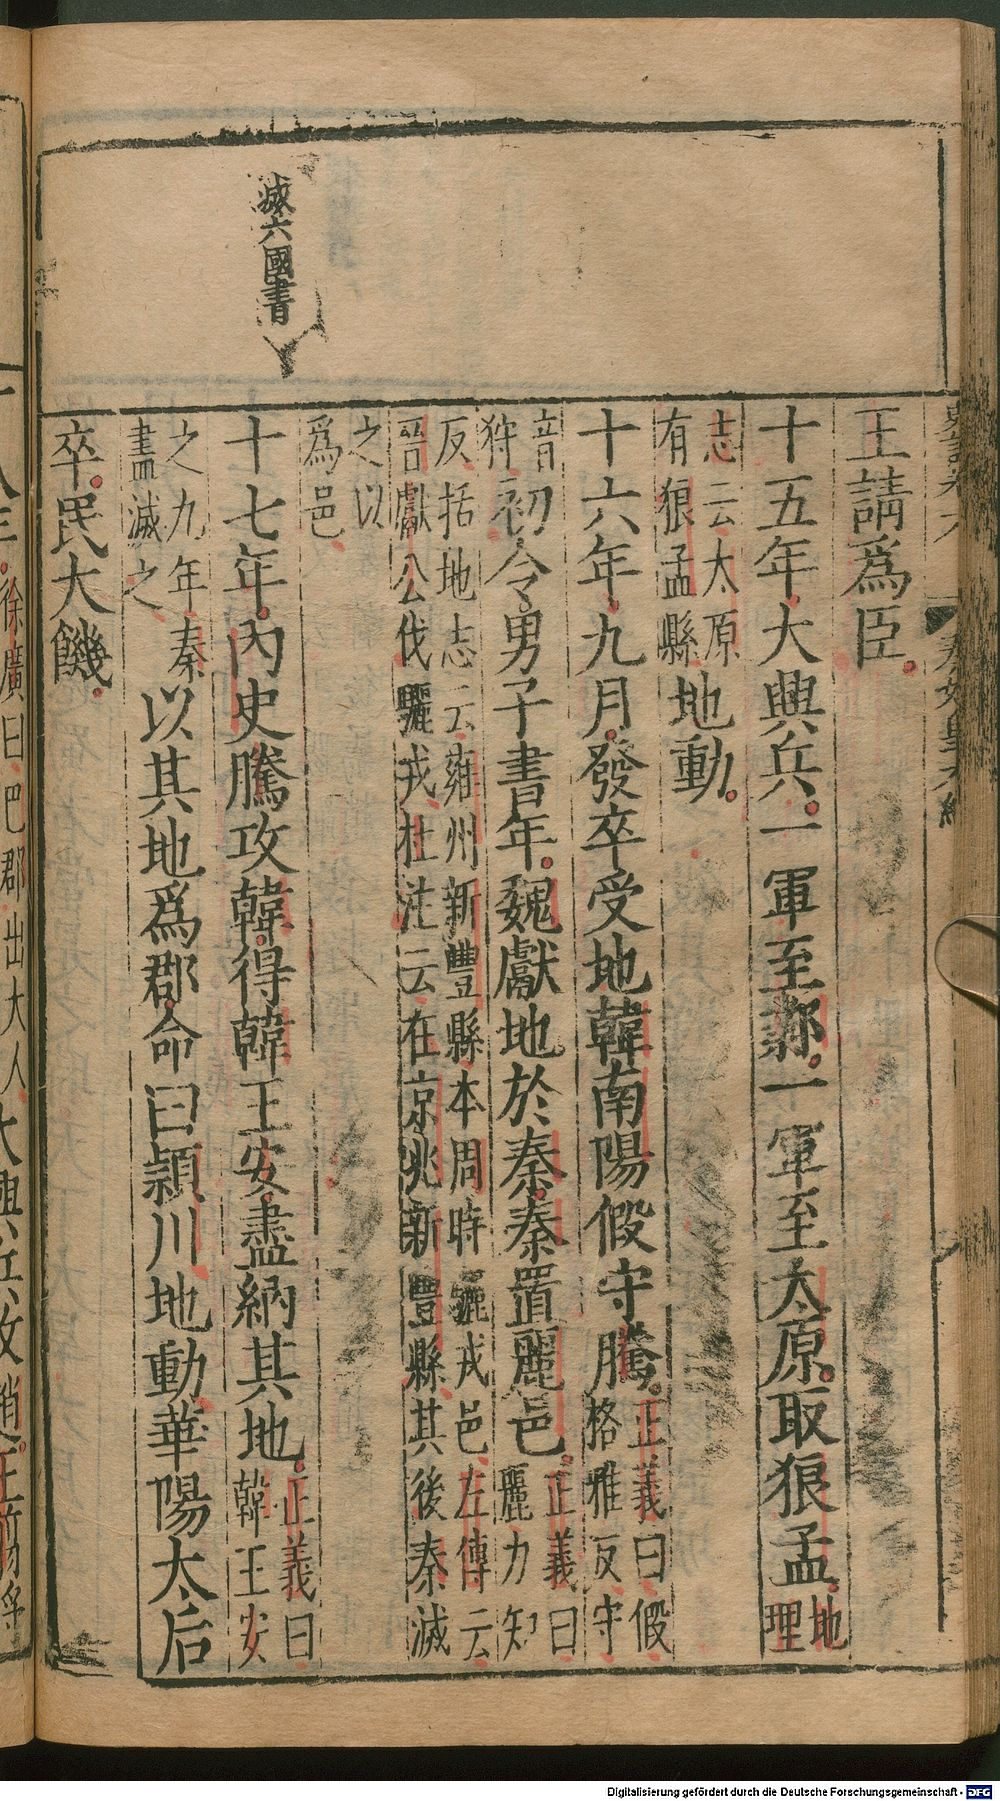 滅六國書
王請爲臣
十五年大興兵一軍至鄴一軍至太原取狼孟地
理
志云太原
有狼孟縣地動
十六年九月發卒受地韓南陽假守騰正義曰假
格雅反守
音
狩初令男子書年魏獻地於秦秦置麗邑正義曰
麗力知
反括地志云雍州新豐縣本周時驪戎邑左傳云
晉獻公伐驪戎杜注云在京兆新豐縣其後秦滅
之以
爲邑
十七年內史騰攻韓得韓王安盡納其地正義曰
韓王安
之九年秦
盡滅之以其地爲郡命曰潁川地動華陽太后
卒民大饑
徐廣曰巴郡出大人大興兵攻趙
Digitalisierung gefördert durch die Deutsche Forschungsgemeinschaft - DFG